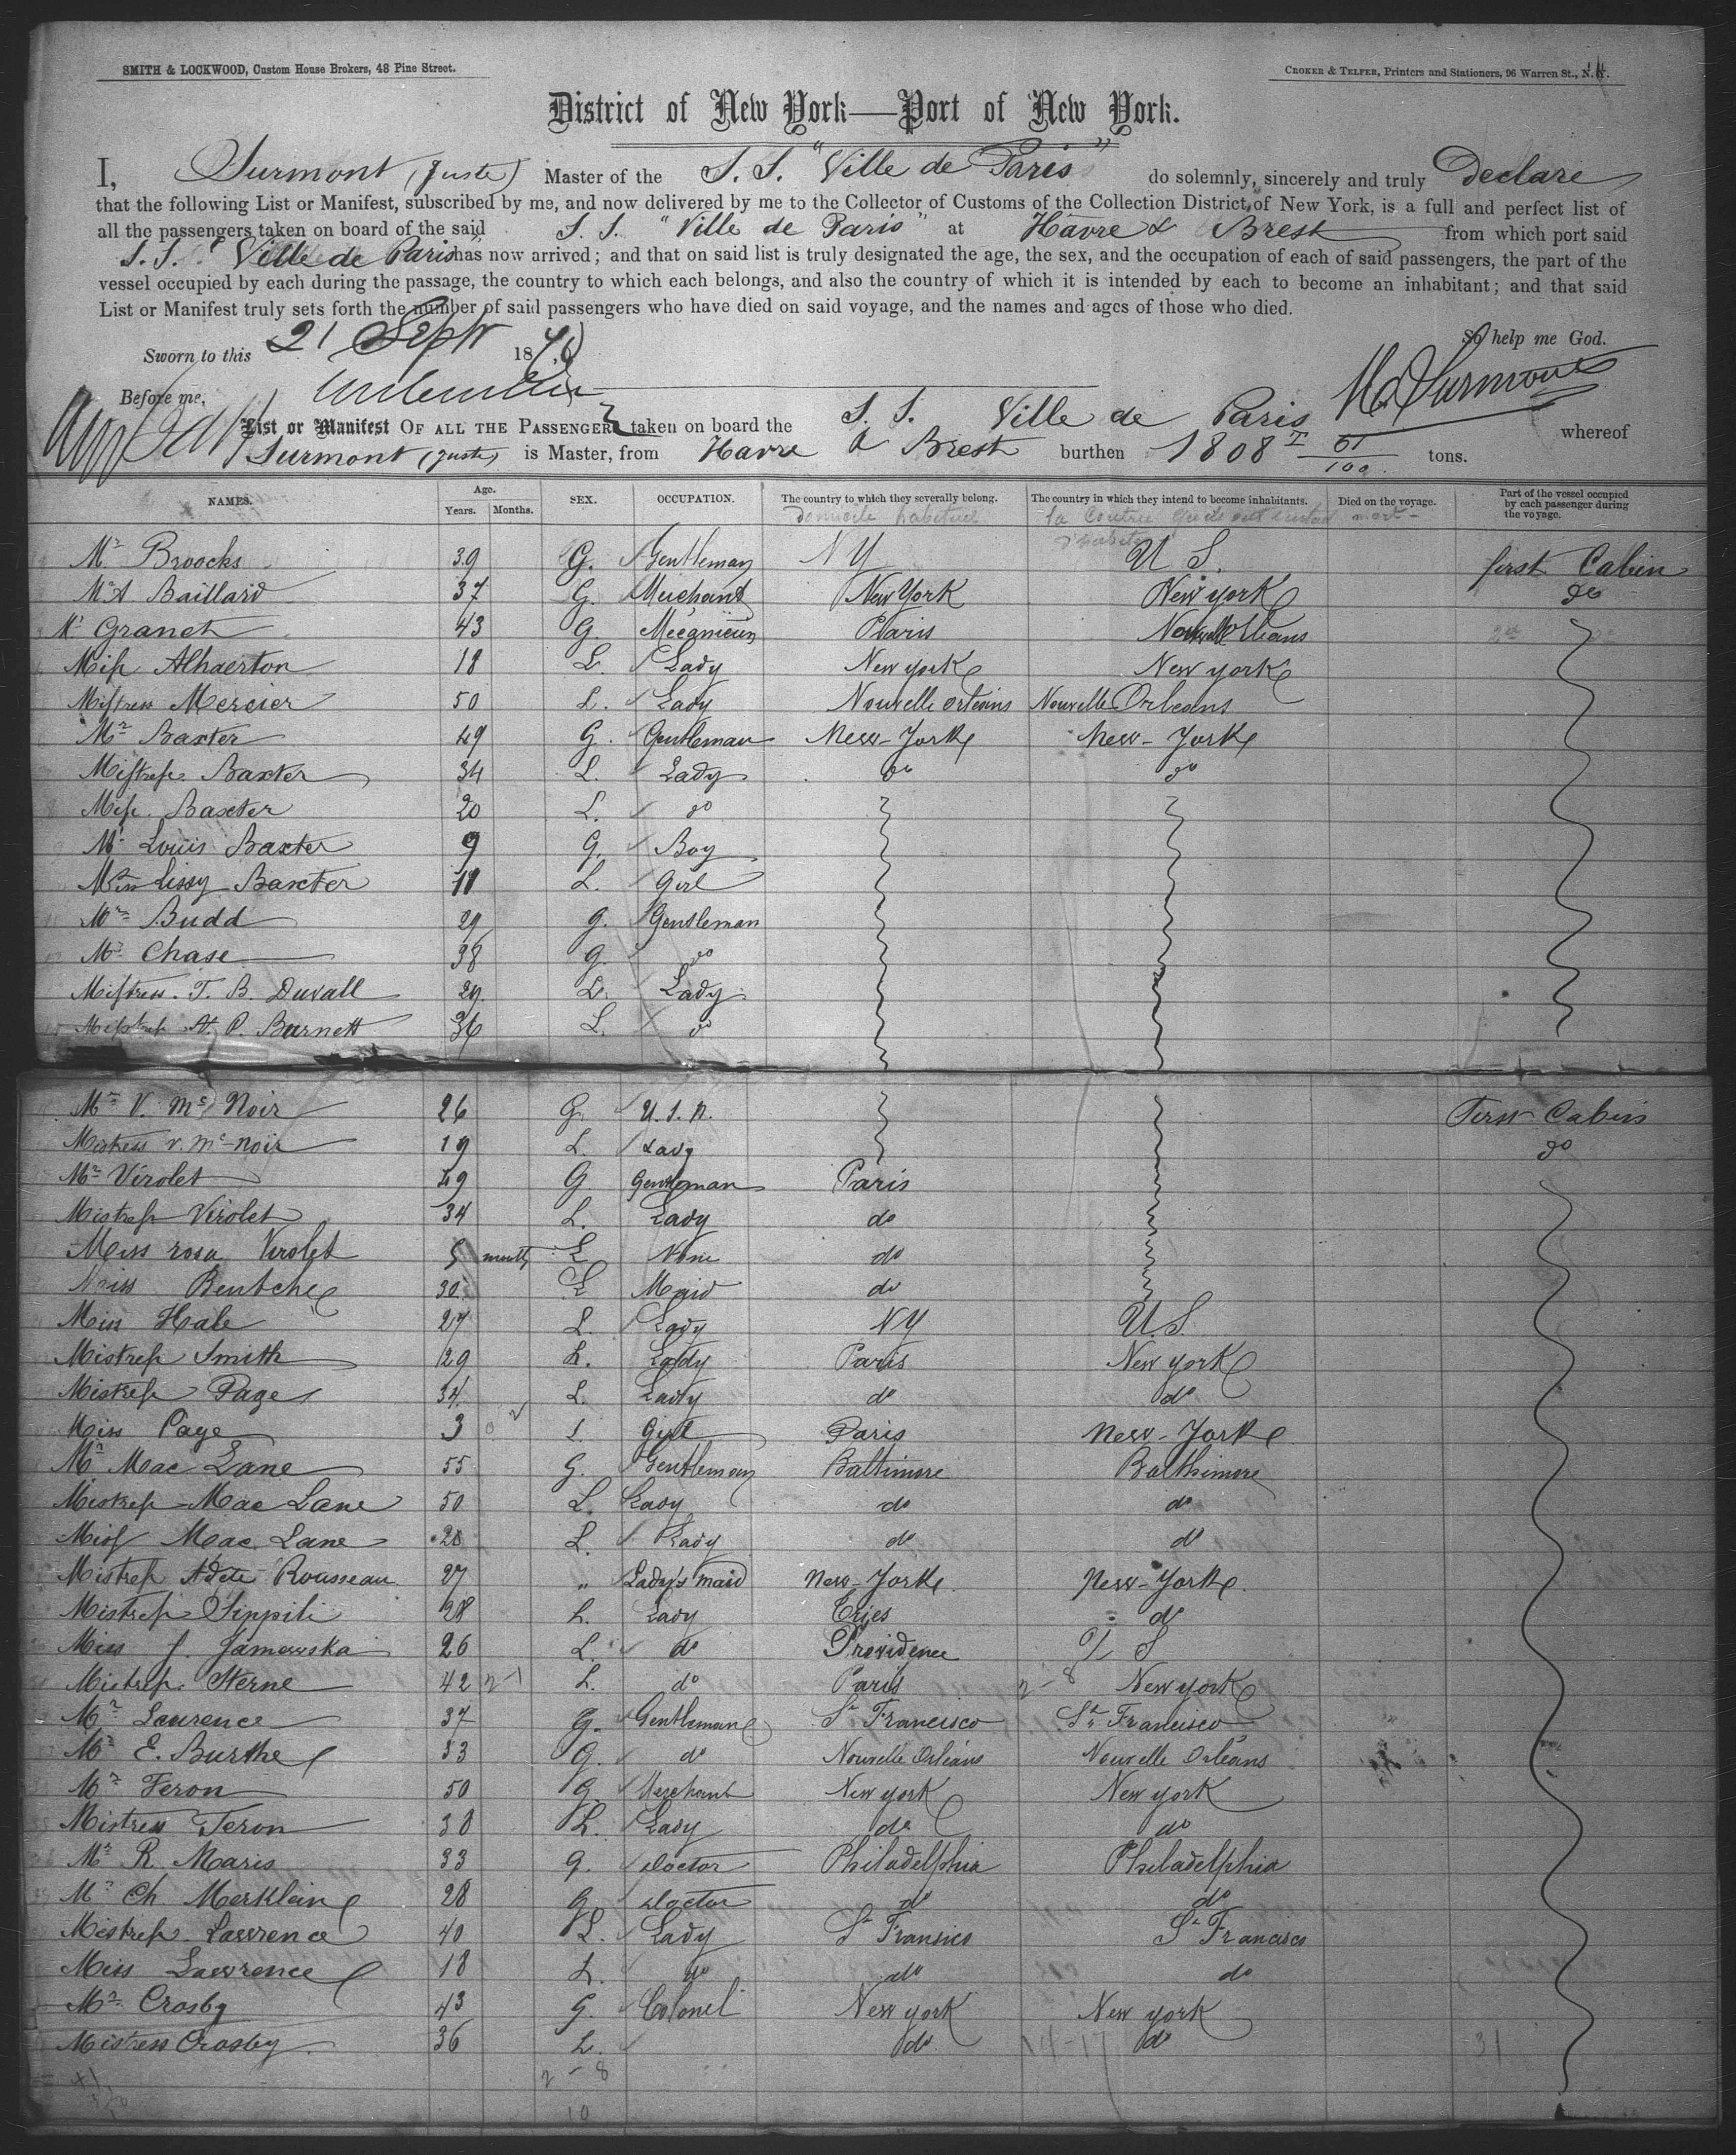 SMITH & LOCKWOOD, Custom House Brokers, 48 Pine Street.
CROKER & TELFER, Printers and Stationers, 96 Warren St., N.Y.
District of New York—Port of New York.
I, Surmont (Juste) Master of the S. S. "Ville de Paris" do solemnly, sincerely and truly Declare
that the following List or Manifest, subscribed by me, and now delivered by me to the Collector of Customs of the Collection District of New York, is a full and perfect list of
all the passengers taken on board of the said S. S. "Ville de Paris" at Havre & Brest from which port said
S. S. "Ville de Paris" has now arrived; and that on said list is truly designated the age, the sex, and the occupation of each of said passengers, the part of the
vessel occupied by each during the passage, the country to which each belongs, and also the country of which it is intended by each to become an inhabitant; and that said
List or Manifest truly sets forth the number of said passengers who have died on said voyage, and the names and ages of those who died.
So help me God.
Sworn to this 21 Sept 1870
Before me,
List or Manifest OF ALL THE PASSENGERS taken on board the S. S. Ville de Paris whereof
Surmont (Juste) is Master, from Havre & Brest burthen 1808 T 01/100 tons.
NAMES. Age. Years. Months. SEX. OCCUPATION. The country to which they severally belong. The country in which they intend to become inhabitants. Died on the voyage. Part of the vessel occupied by each passenger during the voyage.
domicile habituel mort
Mr Broocks 39 G. Gentleman NY U S. first Cabin
Mr A Baillard 37 G. Merchant New York New york do
Mr Granet 43 G. Mécanicien Paris Orleans
Miss Alhaerton 18 L. Lady New york New york
Mistress Mercier 50 L. Lady Nouvelle Orleans Nouvelle Orleans
Mr Baxter 49 G. Gentleman New-York New-York
Mistress Baxter 34 L. Lady do do
Miss Baxter 20 L. do
Mr Louis Baxter 9 G. Boy
Miss Lissy Baxter 11 L. Girl
Mr Budd 29 G. Gentleman
Mr Chase 38 G. do
Mistress T. B. Duvall 29 L. Lady
Mistress A. P. Burnett 36 L. do
Mr V. Mc Noir 26 G. U. S. N. First Cabin
Mistress V. Mc-Noir 19 L. Lady do
Mr Virolet 49 G. Gentleman Paris
Mistress Virolet 34 L. Lady do
Miss rosa Virolet 5 month L None do
Miss Bentche 30 L Maid do
Miss Hale 27 L. Lady NY U.S.
Mistress Smith 29 L. Lady Paris New york
Mistress Page 34 L. Lady do do
Miss Page 3 L. Girl Paris New-York
Mr Mac Lane 55 G. Gentleman Baltimore Balthimore
Mistress Mac Lane 50 L. Lady do do
Miss Mac Lane 20 L. Lady do do
Mistress Adele Rousseau 27 " Lady's maid New-York New-York
Mistress Sippili 28 L. Lady do
Miss J. Jamowska 26 L. do Providence U S
Mistress Sterne 42 L. do Paris New york
Mr Laurence 37 G. Gentleman St Francisco St Francisco
Mr E. Burthe 53 G. do Nouvelle Orléans Nouvelle Orléans
Mr Feron 50 G. Merchant New york New york
Mistress Feron 38 L. Lady do do
Mr R. Maris 33 G. Doctor Philadelphia Philadelphia
Mr Ch Merklein 28 G. Doctor do do
Mistress Lawrence 40 L. Lady St Fransico St Francisco
Miss Lawrence 18 L. do do do
Mr Crosby 43 G. Colonel New york New york
Mistress Crosby 36 L. do do
14-17 31
2 - 8
10